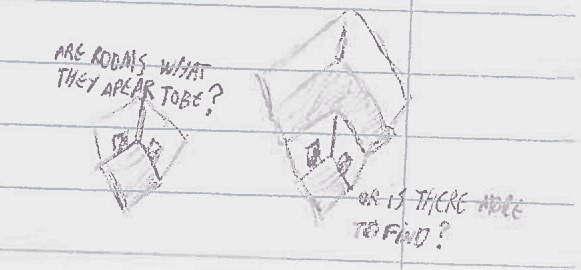 ARE ROOMS WHAT
THEY APEAR TO BE?
OR IS THERE MORE
TO FIND?